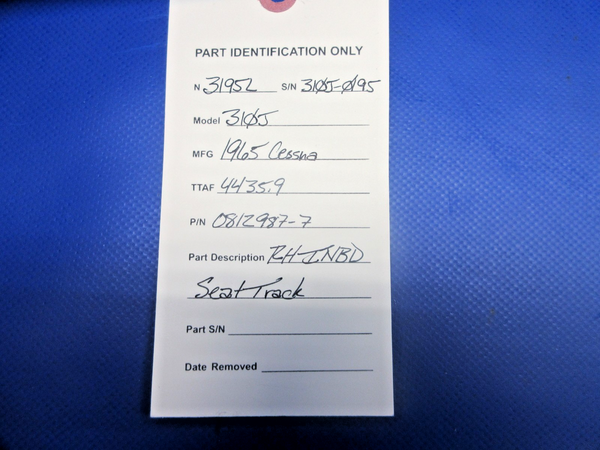 PART IDENTIFICATION ONLY
N 3195L S/N 310J-0195
Model 310J
MFG 1965 Cessna
TTAF 4435.9
P/N 0812987-7
Part Description RH INBD
Seat Track
Part S/N
Date Removed